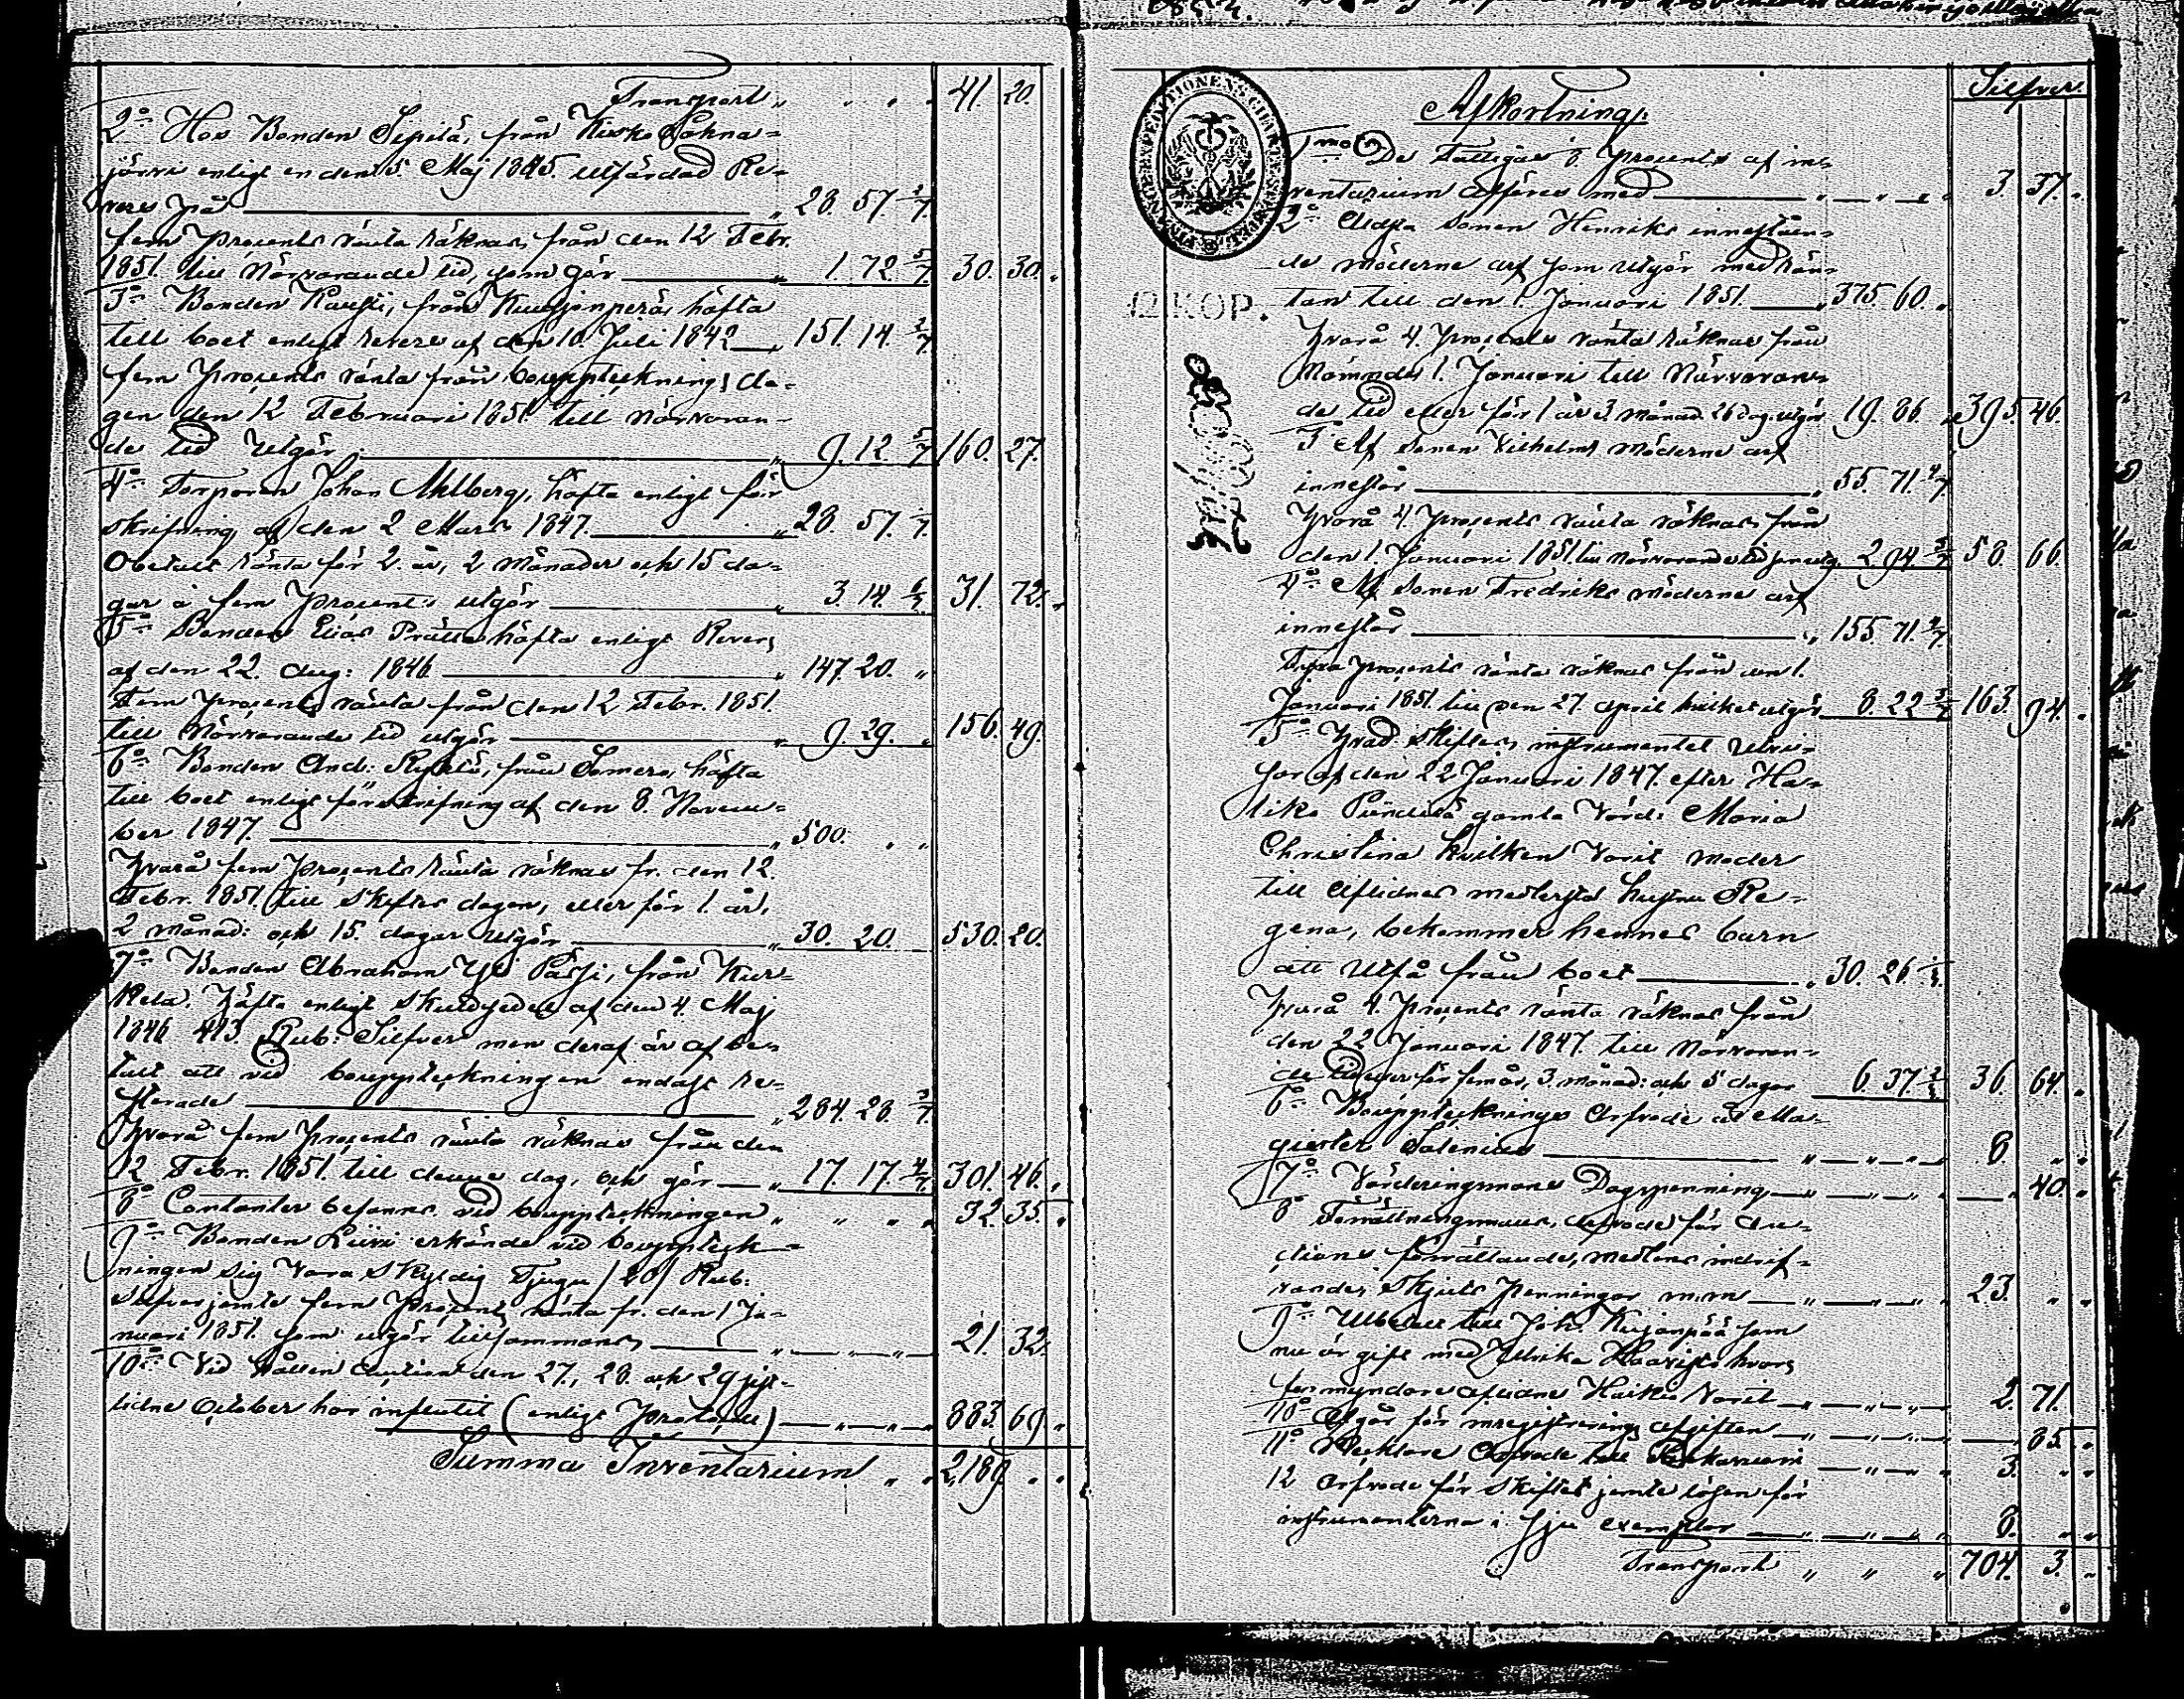 Transport " " " " 41. 20.
2:o Hos Bonden Sepilä, från Kisko Lohna-
järvi enligt en den 5. Maj 1845. utfärdad Re-
vers på " 28. 57. 1/7.
fem Procents ränta räknas, från den 12 Febr.
1851. till Närvarande tid, som gör " 1. 72. 5/7. 30. 30. "
3:o Bonden, från häfta
till boet enligt revers af den 10. Juli 1842 " 151. 14. 2/7
fem Procents ränta från bouppteckningsda-
gen den 12 Februari 1851. till Närvaran-
de tid Utgör " 9. 12. 5/7 160. 27.
4:o Torparen Johan Ahlberg, häfta enligt för-
skrifning af den 2 Mars 1847. " 28. 57. 1/7.
Obetalt ränta för 2 år, 2 Månader och 15 da-
gar à fem Procent utgör " 3. 14. 6/7. 31. 72. "
5:o Bonden Elias häfta enligt Revers
af den 22. Aug: 1846 " 147. 20. "
Fem Procents ränta från den 12 Febr. 1851.
till Närvarande tid utgör " 9. 29. " 156. 49.
6:o Bonden And:, från Somero, häfta
till boet enligt förskrifning af den 8. Novem-
ber 1847. " 500. " "
Hvarå fem Procents ränta räknas fr. den 12.
Febr. 1851. till Skiftes dagen, eller för 1. år,
2 månad: och 15. dagar Utgör " 30. 20. 530. 20.
7:o Bonden Abraham Yli, från Kur-
kela. Häfta enligt Skuldsedel af den 4. Maj
1846 413. Rub: Silfver men deraf är afbe-
talt att vid bouppteckningen endast re-
sterade " 284. 28. 3/7.
Hvarå fem Procents ränta räknas från den
12 Febr. 1851. till denne dag, och gör " 17. 17. 4/7. 301. 46. "
8:o Contanter befanns vid bouppteckningen " " " " 32. 35. "
9:o Bonden Liivi erkände vid bouppteck-
ningen sig Vara Skyldig Tjugu /20/ Rub:
Silfver jemte fem Procents ränta fr. den 1 Ja-
nuari 1851. som utgör tillsammans " " " " 21. 32.
10:o Vid hållen Auction den 27., 28. och 29 sist-
lidne October har influtit (enligt Protocoll) " " " 883. 69. "
Summa Inventarium " " 2,189. " "
Silfver.
Afkortning.
1mo De Fattigas Procents af in-
ventarium afföres med " " " " 3. 37. "
2:o Sonen Henriks innestån-
de möderne arf som utgör med rän-
tan till den 1. Januari 1851. " 375. 60. "
12 KOP.
Hvarå 4. Procents ränta räknas från
Nämnde 1. Januari till Närvaran-
de tid eller för 1 år 3. Månad. 26 dag. utgör 19. 86. " 395. 46.
3:o Af Sonen Vilhelms Möderne arf
innestår " 55. 71. 4/7
Hvarå 4. Procents ränta räknas från
den 1. Januari 1851. till Närvarande tid som utg. 2. 94. 3/7 58. 66.
4:o Af Sonen Fredriks möderne arf
innestår " 155. 71. 4/7
Fyra Procents ränta räknas från den 1.
Januari 1851. till den 27. April hvilket utgör 8. 22. 3/7 163. 94. "
5:o Hvad Skiftes instrumentet utvi-
sar af den 22 Januari 1847. efter Ha-
gamla Värd: Maria
Christina hvilken Varit moder
till Aflidnes hustru Re-
gena, bekommer hennes barn
att Utfå från boet " 30. 26.
Hvarå 4. Procents ränta räknas från
den 22 Januari 1847. till Närvaran-
de tid eller för fem år, 3. månad: och 5 dagar 6. 37. 36. 64. "
6:o Boupptecknings Arfvode åt Ma-
gister Salenius " " " " 8. " "
7:o Värderingsmans Dagspenning " " " " 40. "
8:o Förrättningsmans Arfvode för Auc-
tions förrättande, medlens indrif-
vande, Skjuts Penningar m.m " " " " 23. " "
9:o Utbetalt till Joh: Kujanpää som
nu är gift med Ulrika Haavisto hvars
förmyndare aflidne Heikki Varit " " " " 2. 71.
10:o Afgår för inregistrering afgiften " " " " 85. "
11:o Arfvode till " " " 3. " "
12 Arfvode för Skiftet jemte lösen för
instrumenterna i sju exemplar " " " " 8. " "
Transport " " " 704. 3. "